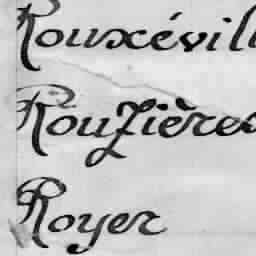 Rouxévil
Rouzières
Royer